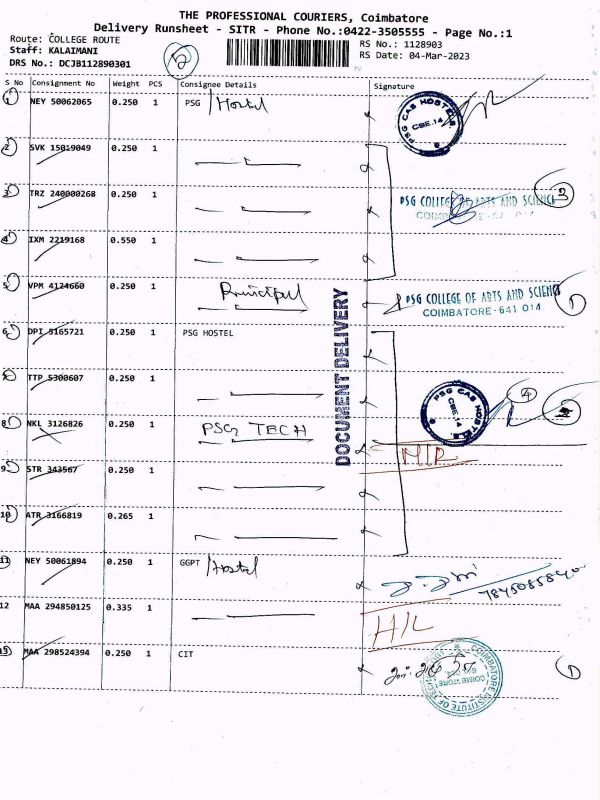 THE PROFESSIONAL COURIERS, Coimbatore
Delivery Runsheet - SITR - Phone No.:0422-3505555 - Page No.:1
Route: COLLEGE ROUTE
Staff: KALAIMANI
DRS No.: DCJB112890301
RS No.: 1128903
RS Date: 04-Mar-2023
S No Consignment No Weight PCS Consignee Details Signature
1 NEY 50062065 0.250 1 PSG /Hostel
PSG CAS HOSTELS CBE.14
2 SVK 15019049 0.250 1
3 TRZ 240000268 0.250 1
PSG COLLEGE OF ARTS AND SCIENCE
3
4 IXM 2219168 0.550 1
5 VPM 4124660 0.250 1 Principal
PSG COLLEGE OF ARTS AND SCIENCE
COIMBATORE-641 014.
1
DOCUMENT DELIVERY
6 DPI 5165721 0.250 1 PSG HOSTEL
7 TTP 5300607 0.250 1
PSG CAS HOSTELS CBE.14
4
8 NKL 3126826 0.250 1 PSG TECH
9 STR 343567 0.250 1
10 ATR 3166819 0.265 1
11 NEY 50061894 0.250 1 GGPT /Hostel
7845085840
12 MAA 294850125 0.335 1
H/L
13 MAA 298524394 0.250 1 CIT
COIMBATORE INSTITUTE OF TECHNOLOGY
1